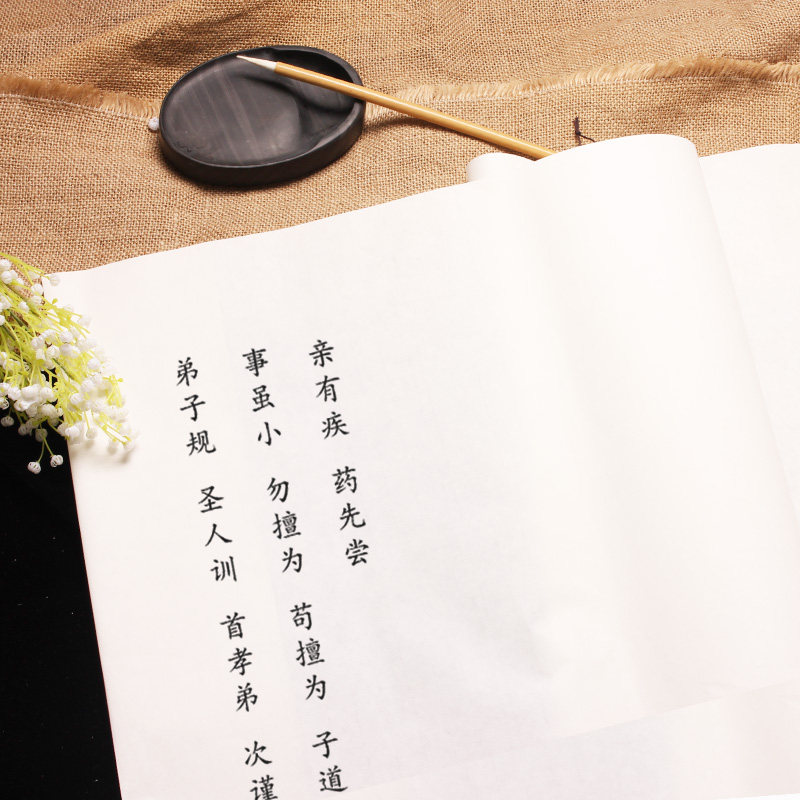 弟子规 圣人训 首孝弟 次谨
事虽小 勿擅为 苟擅为 子道
亲有疾 药先尝